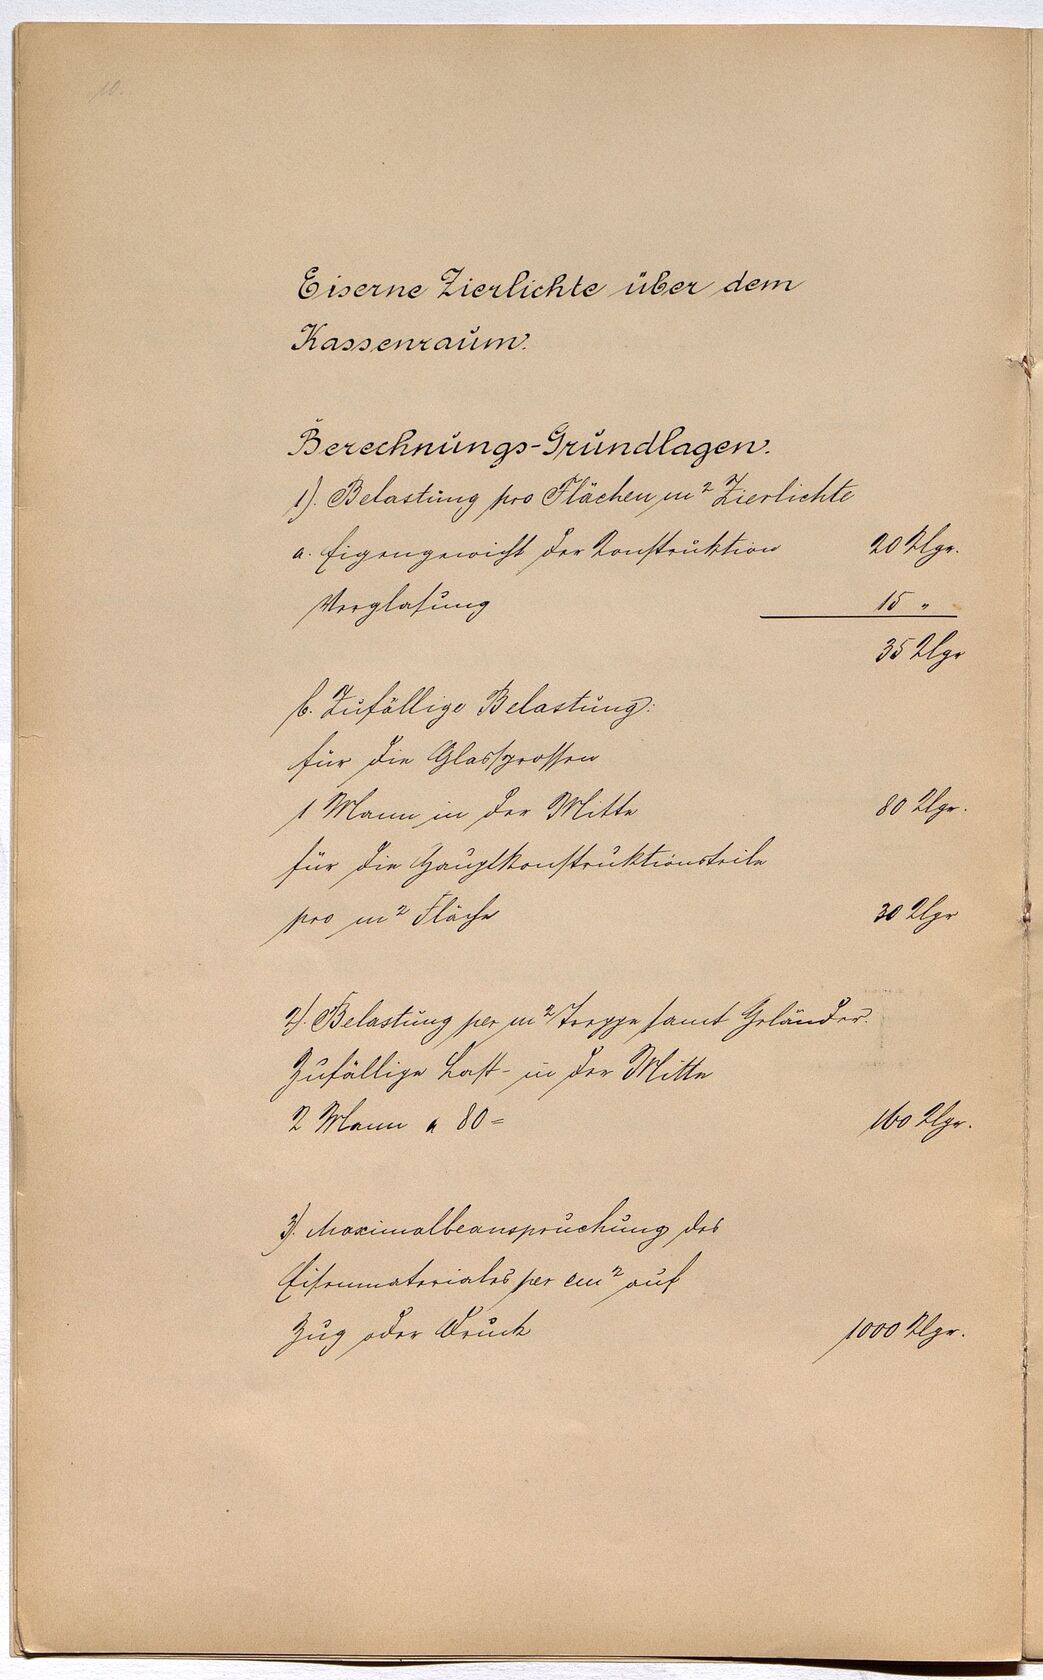 10.
Eiserne Zierlichte über dem
Kassenraum.
Berechnungs-Grundlagen.
1). Belastung pro Flächen m² Zierlichte
a. Eigengewicht der Konstruktion 20 Klgr.
Verglasung 15 "
35 Klgr
b. Zufällige Belastung:
für die Glassprossen
1 Mann in der Mitte 80 Klgr.
für die Hauptkonstruktionsteile
pro m² Fläche 30 Klgr
2). Belastung per m² Treppe samt Geländer.
Zufällige Last in der Mitte
2 Mann a 80 = 160 Klgr.
3). Maximalbeanspruchung des
Eisenmateriales per cm² auf
Zug oder Druck 1000 Klgr.